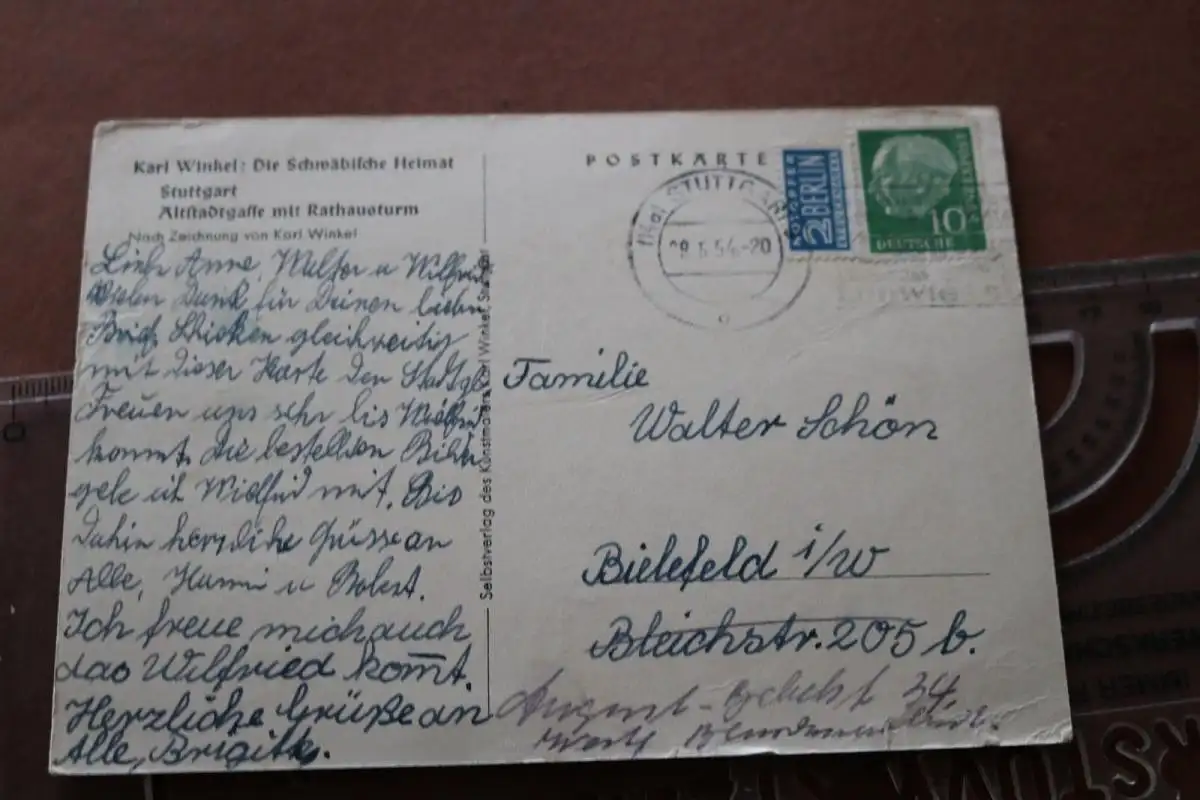 Karl Winkel: Die Schwäbische Heimat
Stuttgart
Altstadtgasse mit Rathausturm
Nach Zeichnung von Karl Winkel
Liebe Anne, Walter u Wilfried
Vielen Dank für Deinen lieben
Brief. Schicken gleichzeitig
mit dieser Karte den
Freuen uns sehr bis Wilfried
kommt. Die bestellten
gebe ich Wilfrid mit. Bis
Dahin herzliche Grüsse an
Alle, Hanni u Robert.
Ich freue mich auch
das Wilfried kom̅t.
Herzliche Grüße an
Alle, Brigitte.
Selbstverlag des Kunstmalers Karl Winkel, Stuttgart
POSTKARTE
STUTTGART
5.54.-20
NOTOPFER
2 BERLIN
STEUERMARKE
10
DEUTSCHE
BUNDESPOST
Familie
Walter Schön
Bielefeld i/W
Bleichstr. 205 b.
August-Bebelst 34
0